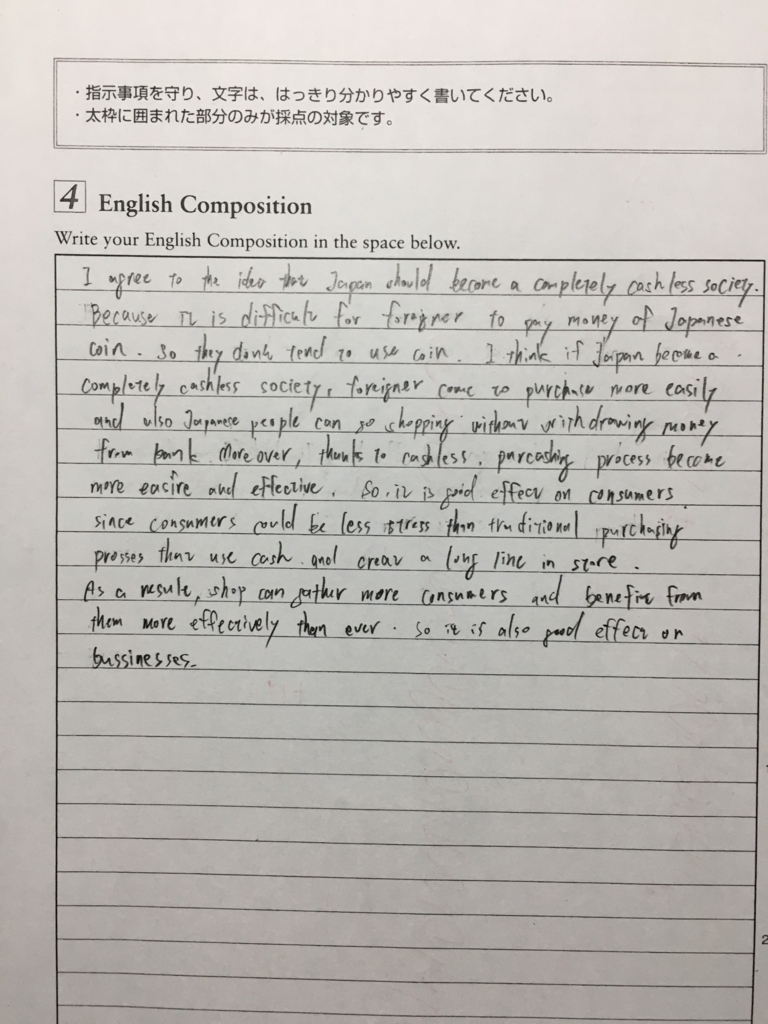 ・指示事項を守り、文字は、はっきり分かりやすく書いてください。
・太枠に囲まれた部分のみが採点の対象です。
4 English Composition
Write your English Composition in the space below.
I agree to the idea that Japan should become a completely cashless society.
Because it is difficult for foreigner to pay money of Japanese
coin. So they don't tend to use coin. I think if Japan become a
completely cashless society, foreigner come to purchase more easily
and also Japanese people can go shopping without withdrawing money
from bank. Moreover, thanks to cashless, purcashing process become
more easire and effective. So, it is good effect on consumers
since consumers could be less stress than traditional purchasing
prosses that use cash and creat a long line in store.
As a result, shop can gather more consumers and benefits from
them more effectively than ever. So it is also good effect on
bussinesses.
2